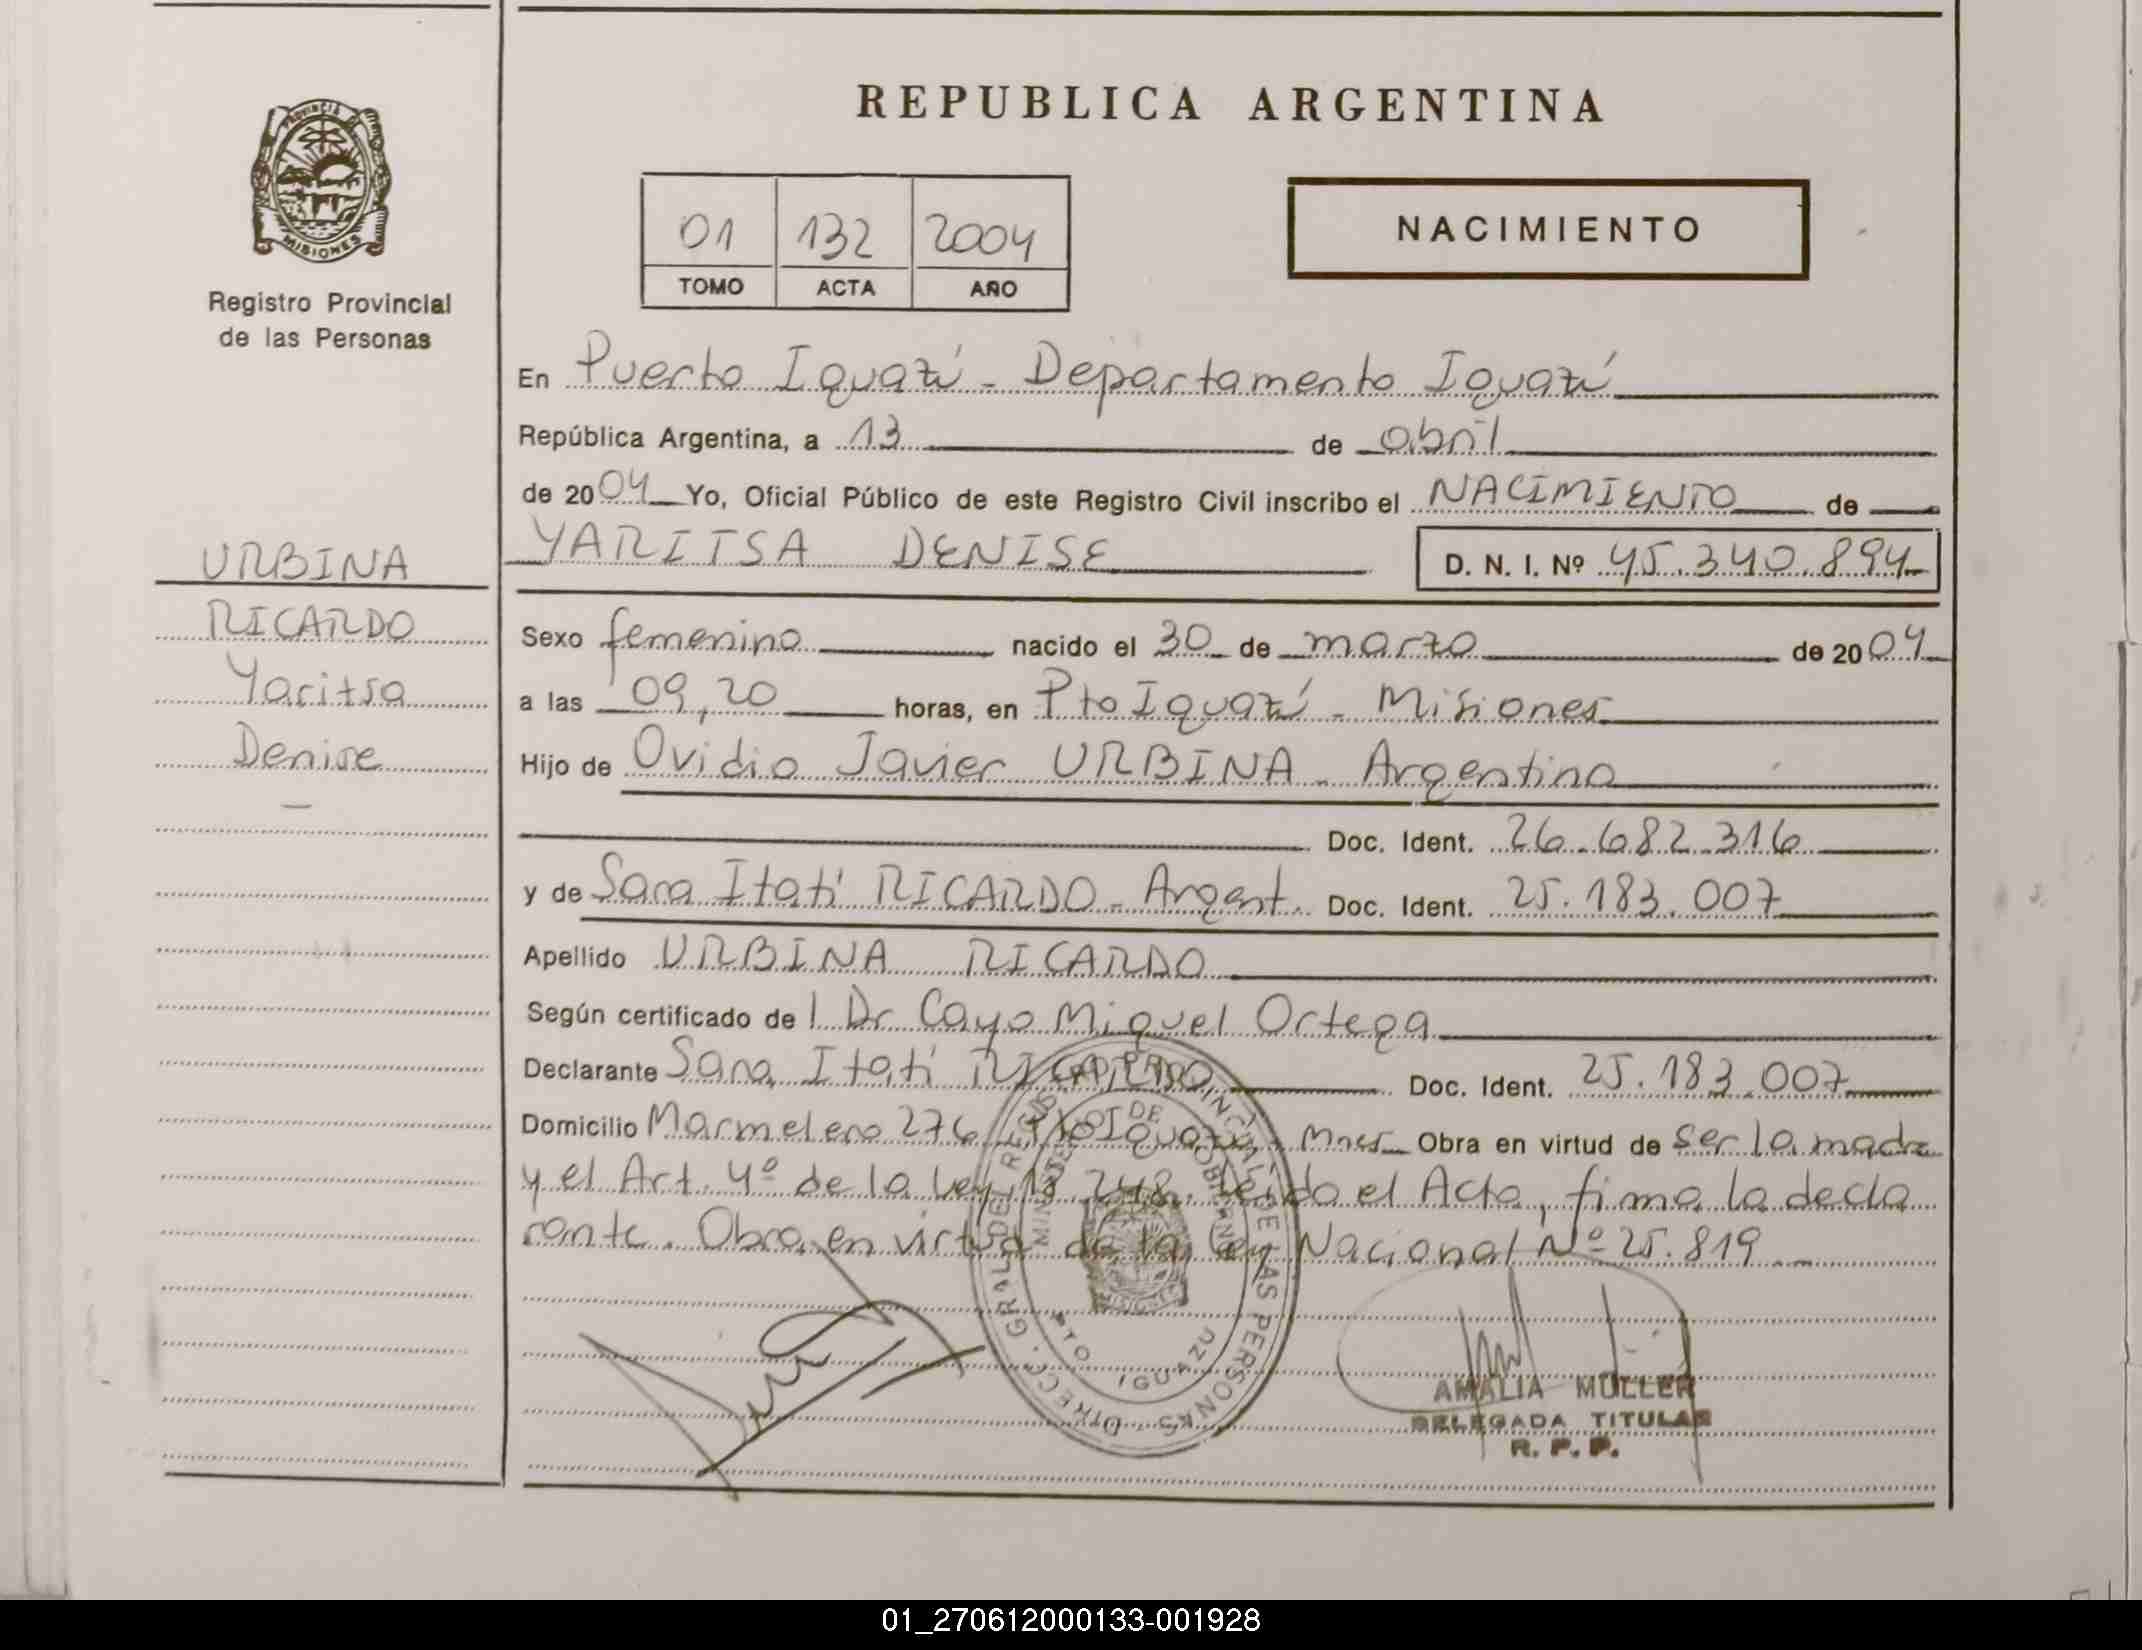 REPUBLICA ARGENTINA
PROVINCIA DE
MISIONES
Registro Provincial
de las Personas
01 132 2004
TOMO ACTA AÑO
NACIMIENTO
En Puerto Iguazú - Departamento Iguazú
República Argentina, a 13 de abril
de 2004 Yo, Oficial Público de este Registro Civil inscribo el NACIMIENTO de
YARITSA DENISE D. N. I. Nº 45.340.894
URBINA
RICARDO
Yaritsa
Denise
Sexo femenino nacido el 30 de marzo de 2004
a las 09,20 horas, en Pto Iguazú - Misiones
Hijo de Ovidio Javier URBINA - Argentino
Doc. Ident. 26.682.316
y de Sara Itatí RICARDO - Argent. Doc. Ident. 25.183.007
Apellido URBINA RICARDO
Según certificado de l Dr Cayo Miguel Ortega
Declarante Sara Itatí RICARDO Doc. Ident. 25.183.007
Domicilio Marmelero 276 Pto Iguazú - Mnes Obra en virtud de ser la madre
y el Art. 4º de la Ley 18.248. Leído el Acta, firma la decla
rante. Obra en virtud de la Ley Nacional Nº 25.819 . -
DIRECC. GRAL. DEL REGISTRO PROVINCIAL DE LAS PERSONAS
MINISTERIO DE GOBIERNO
PTO IGUAZU
AMALIA MULLER
DELEGADA TITULAR
R. P. P.
01_270612000133-001928